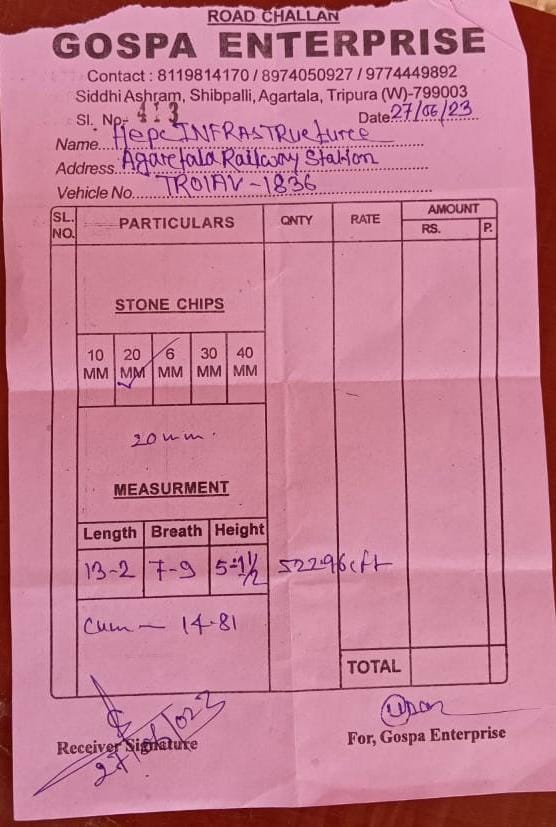 ROAD CHALLAN
GOSPA ENTERPRISE
Contact : 8119814170 / 8974050927 / 9774449892
Siddhi Ashram, Shibpalli, Agartala, Tripura (W)-799003
Sl. No- 413 Date 27/06/23
Name... Hepc INFRASTRUcturee
Address Agaretala Railway Station
Vehicle No. TR01AV-1836
SL. NO. PARTICULARS QNTY RATE AMOUNT
RS. P.
STONE CHIPS
10 MM 20 MM 6 MM 30 MM 40 MM
20 mm
MEASURMENT
Length Breath Height
13-2 7-9 5-1½ 522.96 cft
Cum - 14.81
TOTAL
Receiver Signature
For, Gospa Enterprise